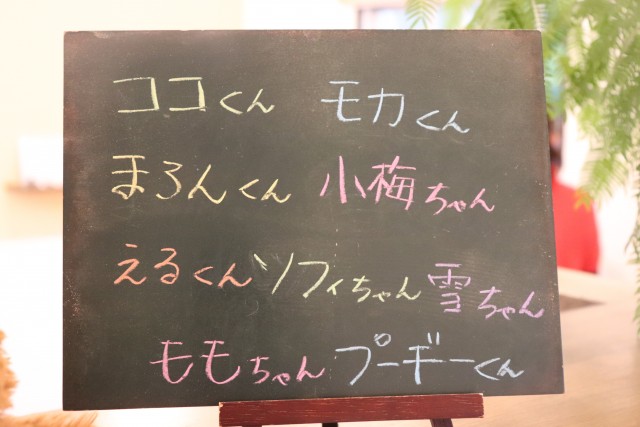 ココくん モカくん
まろんくん 小梅ちゃん
えるくん ソフィちゃん 雪ちゃん
ももちゃん プーギーくん